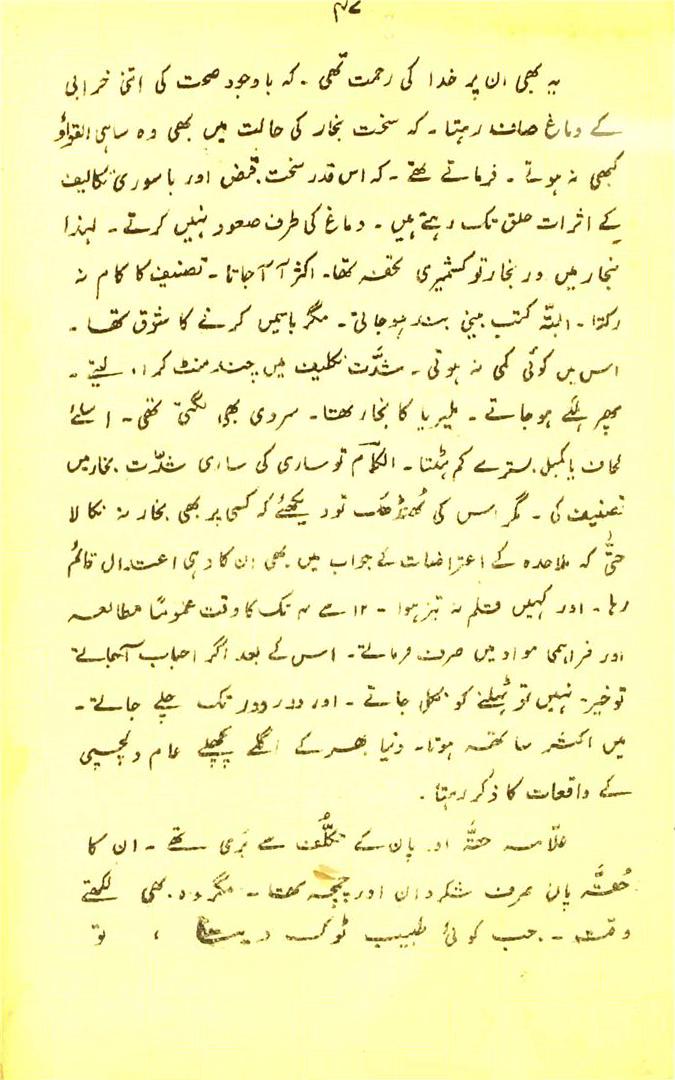 ۴۷
یہ بھی ان پر خدا کی رحمت تھی ۔ کہ باوجود صحت کی اتنی خرابی
کے دماغ صاف رہتا ۔ کہ سخت بخار کی حالت میں بھی وہ ساہی القواؤ
کبھی نہ ہوتے ۔ فرماتے تھے ۔ کہ اس قدر سخت قبض اور باسوری تکالیف
کے اثرات حلق تک رہتے ہیں ۔ دماغ کی طرف صعود نہیں کرتے ۔ لہذا
بخار میں در بخار تو کشمیری تحفہ تھا ۔ اکثر آ آ جاتا ۔ تصنیف کا کام نہ
رکتا ۔ البتّہ کتب بینی بند ہو جاتی ۔ مگر باتیں کرنے کا شوق تھا ۔
اس میں کوئی کمی نہ ہوتی ۔ شدّت تکلیف میں چند منٹ کراہ لیتے ۔
پھر ہلکے ہو جاتے ۔ ملیریا کا بخار تھا ۔ سردی بھی لگتی تھی ۔ اسلئے
لحاف یا کمبل بسترے کم ہٹتا ۔ الکلّام تو ساری کی ساری شدّت بخار میں
تصنیف کی ۔ مگر اس کی تو دیکھئے کہ کسی پر بھی بخار نہ نکالا
حتّٰی کہ ملاحدہ کے اعتراضات کے جواب میں بھی ان کا وہی اعتدال قائم
رہا ۔ اور کہیں قلم نہ تیز ہوا ۔ ۱۲ سے ۴ تک کا وقت عموماً مطالعہ
اور فراہمی مواد میں صرف فرماتے ۔ اس کے بعد اگر احباب آجاتے
تو خیر ۔ نہیں تو ٹہلنے کو نکل جاتے ۔ اور دور دور تک چلے جاتے ۔
میں اکثر ساتھ ہوتا ۔ دنیا بھر کے اگلے پچھلے عام دلچسپی
کے واقعات کا ذکر رہتا ۔
علّامہ حقّہ اور پان کے تکلّف سے بَری تھے ۔ ان کا
حُقّہ پان صرف شکردان اور چمچہ تھا ۔ مگر وہ بھی لکھتے
وقت ۔ جب کوئی طبیب ٹوک دیتا ، تو